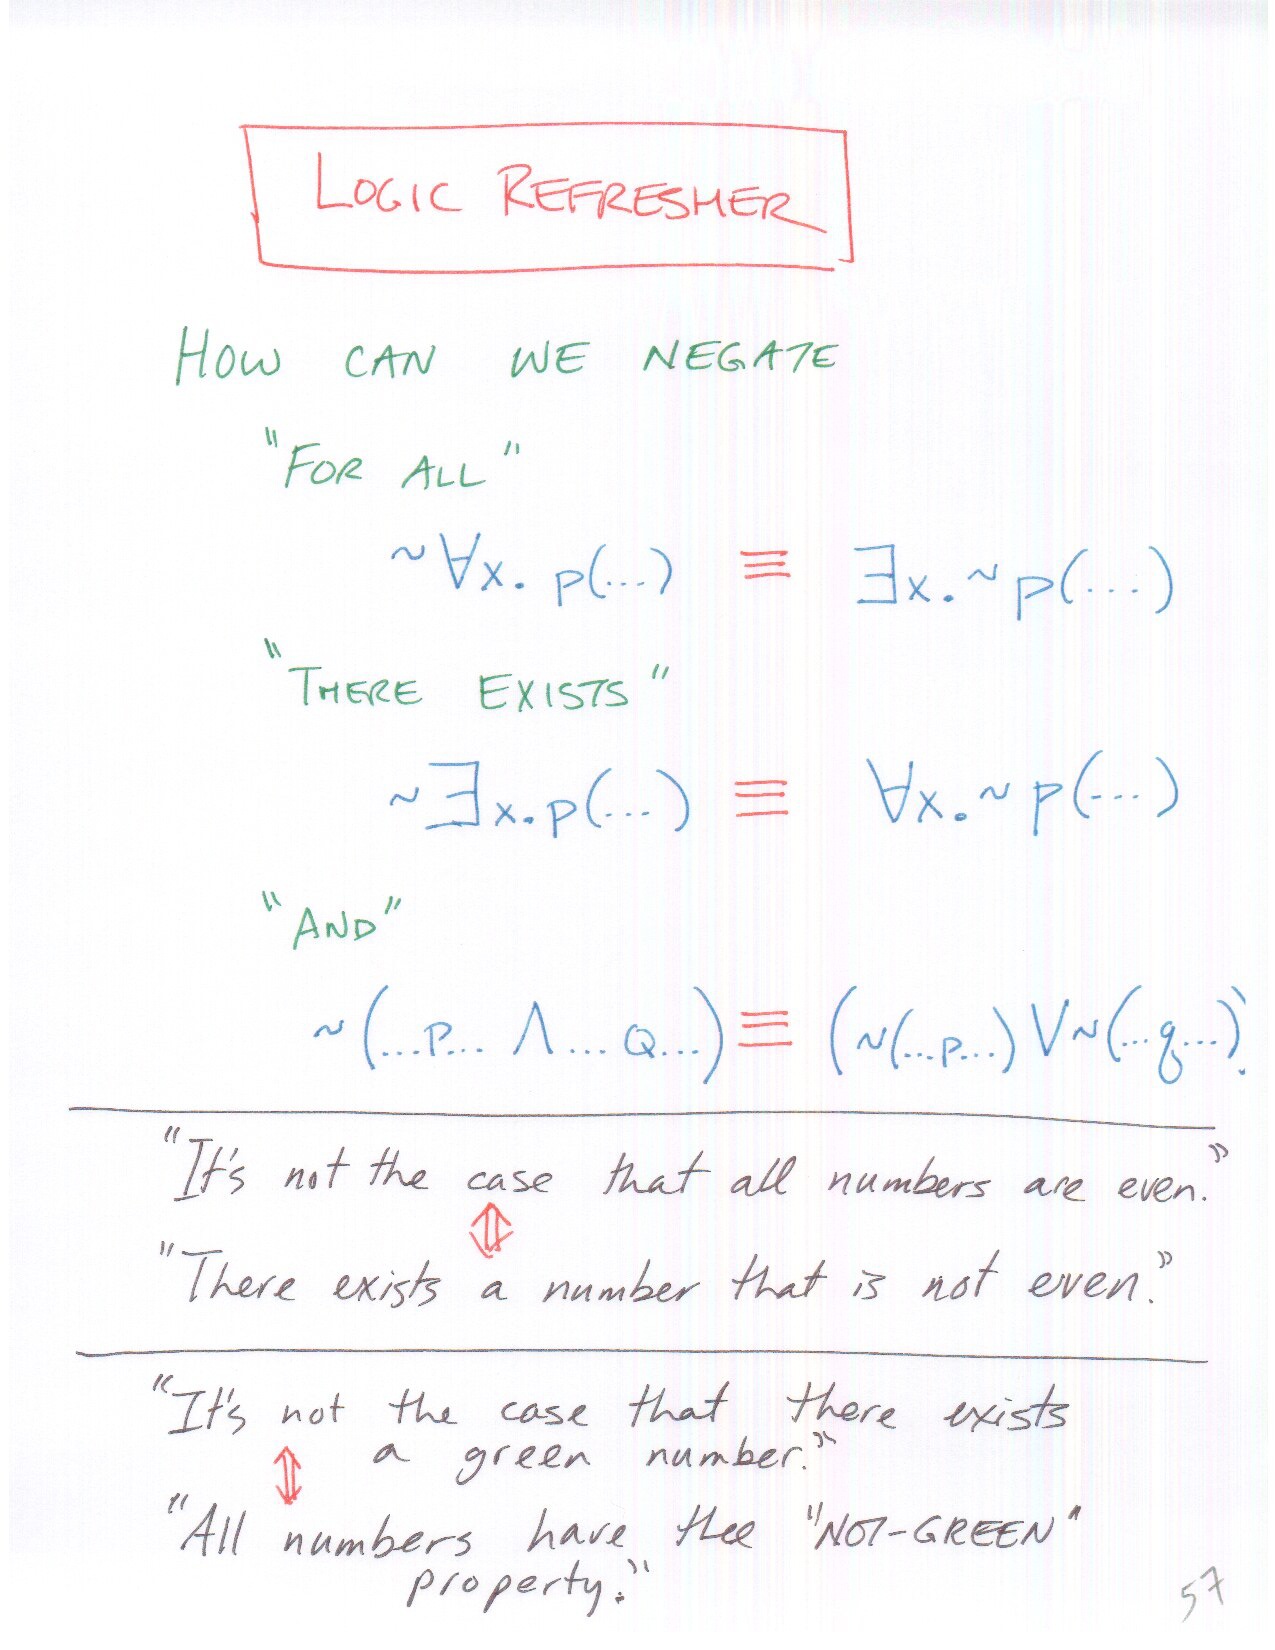 LOGIC REFRESHER
HOW CAN WE NEGATE
"FOR ALL"
~∀x. p(...) ≡ ∃x. ~p(...)
"THERE EXISTS"
~∃x. p(...) ≡ ∀x. ~p(...)
"AND"
~(...P... ∧ ...Q...) ≡ (~(...p...) ∨ ~(...q...))
"It's not the case that all numbers are even."
⇕
"There exists a number that is not even."
"It's not the case that there exists
a green number."
⇕
"All numbers have the "NOT-GREEN"
property."
57